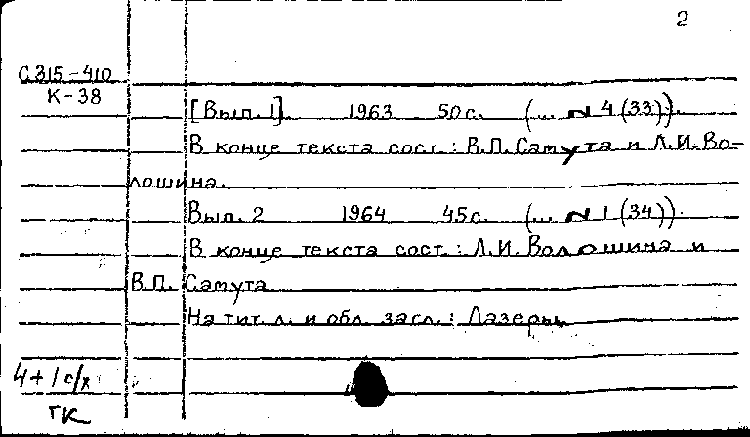 2
С.315-410
К-38
[Вып. 1]. 1963 50с. (... № 4 (33)).
В конце текста сост.: В.П. Самута и Л.И. Во-
лошина.
Вып. 2 1964 45с. (... № 1 (34)).
В конце текста сост.: Л.И. Волошина и
В.П. Самута
На тит. л. и обл. загл.: Лазеры
4+1 с/х
ГК